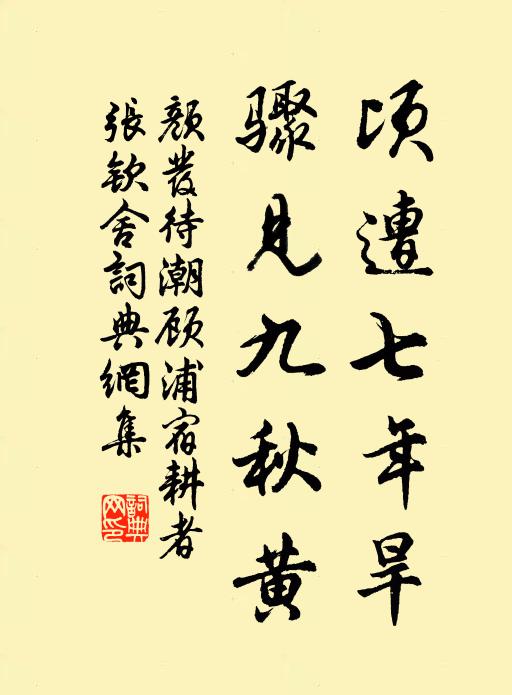 頃遭七年旱
驟見九秋黄
顏發待潮顾浦宿耕者
張欽舍詞典網集
詞典網印